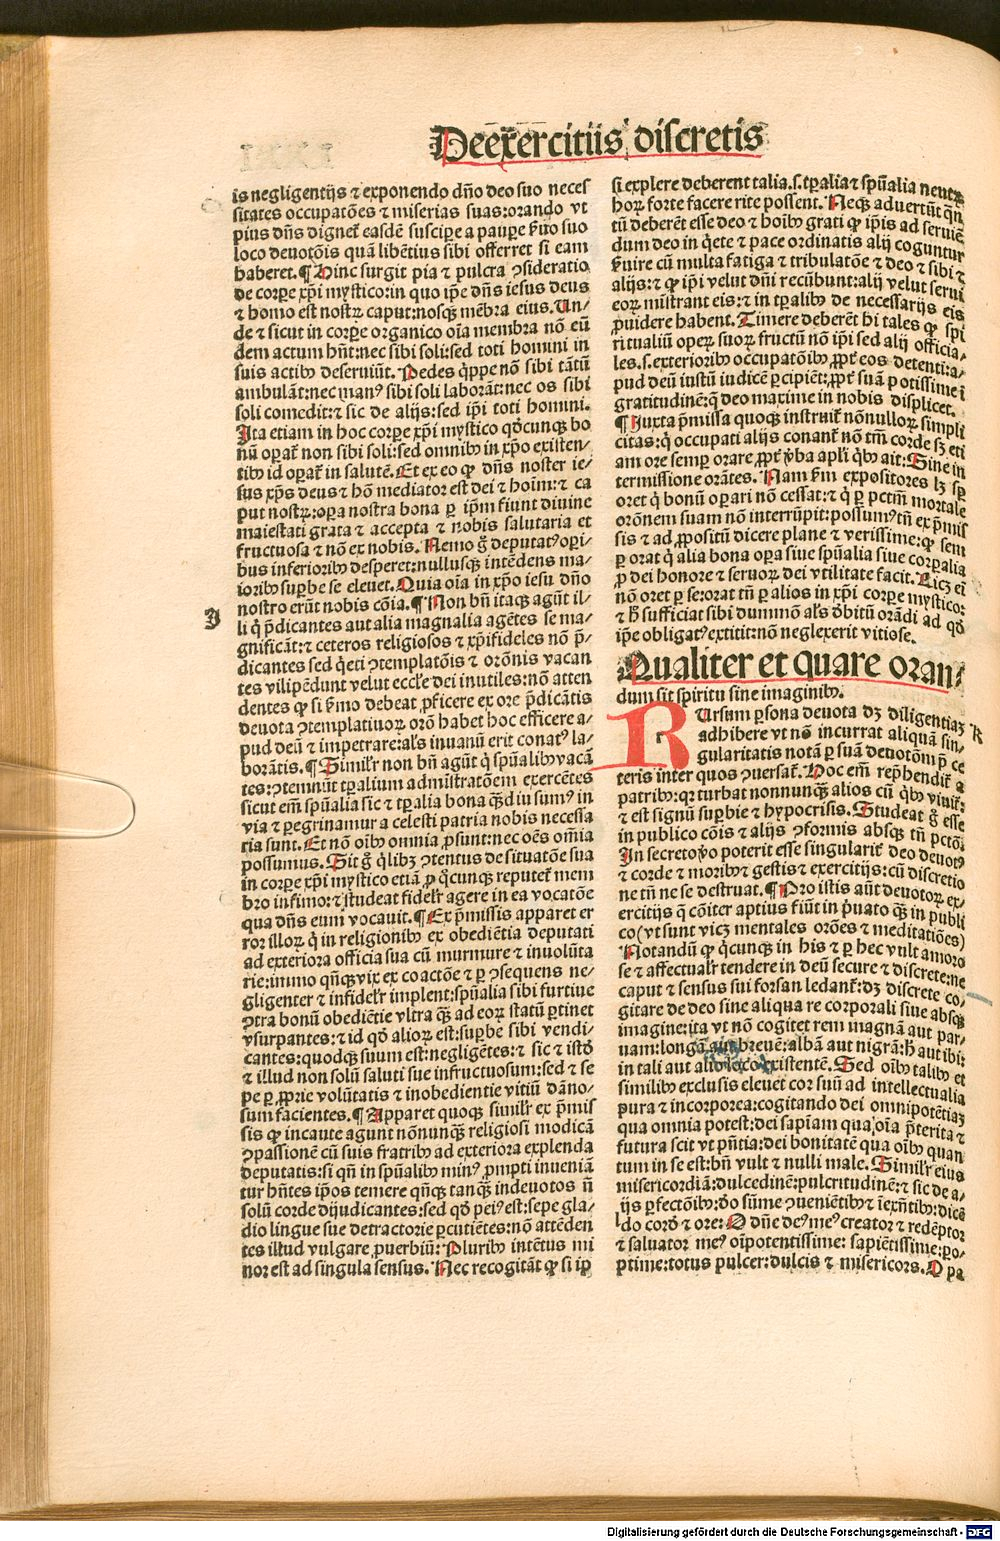 De exercitiis discretis
is negligentijs ⁊ exponendo dño deo suo neces
sitates occupatões ⁊ miserias suas: orando vt
pius dñs dignet̃ easdẽ suscipe a paupe ẜuo suo
loco deuotõis quã libẽtius sibi offerret si eam
haberet. ¶ Hinc surgit pia ⁊ pulcra ↄsideratio
de corpe xp̃i mystico: in quo ip̃e dñs iesus deus
⁊ homo est nostꝝ caput: nosqꝫ mẽbra eius. Un⸗
de ⁊ sicut in corpe organico oĩa membra nõ eũ
dem actum hñt: nec sibi soli: sed toti homini in
suis actibꝰ deseruiũt. Pedes q̃ppe nõ sibi tãtũ
ambulãt: nec manꝰ sibi soli laborãt: nec os sibi
soli comedit: ⁊ sic de alijs: sed ip̃i toti homini.
Ita etiam in hoc corpe xp̃i mystico qd̕cunqꝫ bo
nũ opat̃ non sibi soli: sed omnibꝰ in xp̃o existen⸗
tibꝰ id opat̃ in salutẽ. Et ex eo ꝙ dñs noster ie⸗
sus xp̃s deus ⁊ hõ mediator est dei ⁊ hoĩm: ⁊ ca
put nostꝝ: opa nostra bona ꝑ ip̃m fiunt diuine
maiestati grata ⁊ accepta ⁊ nobis salutaria et
fructuosa ⁊ nõ ex nobis. Nemo g̃ deputatꝰ opi⸗
bus inferioribꝰ desperet: nullusqꝫ intẽdens ma⸗
ioribꝰ supbe se eleuet. Quia oĩa in xp̃o iesu dño
nostro erũt nobis cõia. ¶ Non bñ itaqꝫ agũt il⸗
J
li q̃ p̃dicantes aut alia magnalia agẽtes se ma⸗
gnificãt: ⁊ ceteros religiosos ⁊ xp̃ifideles nõ p̃⸗
dicantes sed q̃eti ↄtemplatõis ⁊ orõnis vacan
tes vilipẽdunt velut eccl̃e dei inutiles: nõ atten
dentes ꝙ si ẜmo debeat ꝓficere ex ore p̃dicãtis
deuota ↄtemplatiuoꝝ orõ habet hoc efficere a⸗
pud deũ ⁊ impetrare: al̃s inuanũ erit conatꝰ la⸗
borãtis. ¶ Simil̃r non bñ agũt q̃ spũalibꝰ vacã
tes: ↄtemnũt tp̃alium admĩstratõem exercẽtes
sicut em̃ spũalia sic ⁊ tp̃alia bona qꝫdiu sumꝰ in
via ⁊ pegrinamur a celesti patria nobis necessa
ria sunt. Et nõ oĩbꝰ omnia ꝓsunt: nec oẽs om̃ia
possumus. Sit g̃ q̃libꝫ ↄtentus de situatõe sua
in corpe xp̃i mystico etiã ꝓ q̃cunqꝫ reputet̃ mem
bro infimo: ⁊ studeat fidel̃r agere in ea vocatõe
qua dñs eum vocauit. ¶ Ex p̃missis apparet er
ror illoꝝ q̃ in religionibꝰ ex obediẽtia deputati
ad exteriora officia sua cũ murmure ⁊ inuolũta
rie: immo qñqꝫ vix ex coactõe ⁊ ꝑ ↄsequens ne⸗
gligenter ⁊ infidel̃r implent: spũalia sibi furtiue
ↄtra bonũ obediẽtie vltra qꝫ ad eoꝝ statũ ptinet
vsurpantes: ⁊ id qd̕ alioꝝ est: supbe sibi vendi⸗
cantes: quodqꝫ suum est: negligẽtes: ⁊ sic ⁊ istd̕
⁊ illud non solũ saluti sue infructuosum: sed ⁊ se
pe ꝑ ꝓprie volũtatis ⁊ inobedientie vitiũ dãno⸗
sum facientes. ¶ Apparet quoqꝫ simil̃r ex p̃mis
sis ꝙ incaute agunt nõnunqꝫ religiosi modicã
ↄpassionẽ cũ suis fratribꝰ ad exteriora explenda
deputatis: si qñ in spũalibꝰ minꝰ ꝓmpti inueniã
tur hñtes ip̃os temere qñqꝫ tanqꝫ indeuotos ñ
solũ corde dijudicantes: sed qd̕ peiꝰ est: sepe gla⸗
dio lingue sue detractorie pcutiẽtes: nõ attẽden
tes illud vulgare ꝓuerbiũ: Pluribꝰ intẽtus mi
nor est ad singula sensus. Nec recogitãt ꝙ si ip̃
si explere deberent talia. s. tp̃alia ⁊ spũalia neut̃
hoꝝ forte facere rite possent. Neqꝫ aduertũt qñ
tũ deberẽt esse deo ⁊ hoĩbꝰ grati ꝙ ip̃is ad seruiẽ
dum deo in q̃ete ⁊ pace ordinatis alij coguntur
ẜuire cũ multa fatiga ⁊ tribulatõe ⁊ deo ⁊ sibi ⁊
alijs: ⁊ ꝙ ip̃i velut dñi recũbunt: alij velut serui
eoꝝ mĩstrant eis: ⁊ in tp̃alibꝰ de necessarijs eis
ꝓuidere habent. Timere deberẽt hi tales ꝙ spi
ritualiũ opeꝝ suoꝝ fructũ nõ ip̃i sed alij officia⸗
les. s. exterioribꝰ occupatõibꝰ ꝓpt̃ eos detenti: a⸗
pud deũ iustũ iudicẽ pcipiẽt: ꝓpt̃ suã potissime ĩ
gratitudinẽ: q̃ deo maxime in nobis displicet.
¶ Juxta p̃missa quoqꝫ instruit̃ nõnulloꝝ simpli
citas: q̃ occupati alijs conant̃ nõ tm̃ corde sꝫ eti
am ore semp orare ꝓpt̃ ṽba apl̃i q̃bꝰ ait: Sine in
termissione orãtes. Nam ẜm expositores lꝫ sp̃
oret q̃ bonũ opari nõ cessat: ⁊ q̃ ꝑ pctm̃ mortale
orõnem suam nõ interrũpit: possumꝰ tñ ex p̃mis
sis ⁊ ad ꝓpositũ dicere plane ⁊ verissime: ꝙ semꝑ
orat q̃ alia bona opa siue spũalia siue corpalia
ꝓ dei honore ⁊ seruoꝝ dei vtilitate facit. Licꝫ em̃
nõ oret ꝑ se: orat tñ ꝑ alios in xp̃i corpe mystico:
⁊ h̃ sufficiat sibi dummõ al̃s d̕bitũ orãdi ad qd̕
ip̃e obligatꝰ extitit: nõ neglexerit vitiose.
Qualiter et quare oran⸗
dum sit spiritu sine imaginibꝰ.
RUrsum psona deuota dꝫ diligentiaꝫ
R
adhibere vt nõ incurrat aliquã sin⸗
gularitatis notã ꝑ suã deuotõm p̃ ce
teris inter quos ↄuersat̃. Hoc em̃ rep̃hendit̃ a
patribꝰ: qꝛ turbat nonnunqꝫ alios cũ q̃bꝰ viuit̃:
⁊ est signũ supbie ⁊ hypocrisis. Studeat g̃ esse
in publico cõis ⁊ alijs ↄformis absqꝫ tñ pctõ:
In secreto ꝟo poterit esse singularit̃ deo deuotꝰ
⁊ corde ⁊ moribꝰ ⁊ gestis ⁊ exercitijs: cũ discretio
ne tñ ne se destruat. ¶ Pro istis aũt deuotoꝝ ex⸗
ercitijs q̃ cõiter aptius fiũt in p̃uato qꝫ in publi
co (vt sunt vicꝫ mentales orões ⁊ meditatiões)
Notandũ ꝙ q̃cunqꝫ in his ⁊ ꝑ hec vult amoro
se ⁊ affectual̃r tendere in deũ secure ⁊ discrete: ne
caput ⁊ sensus sui forsan ledant̃: dꝫ discrete co⸗
gitare de deo sine aliqua re corporali siue absqꝫ
imagine: ita vt nõ cogitet rem magnã aut par⸗
uam: longã aut breuẽ: albã aut nigrã: h̃ aut ibi:
in tali aut alio loco existentẽ. Sed oĩbꝰ talibꝰ et
similibꝰ exclusis eleuet cor suũ ad intellectualia
pura ⁊ incorporea: cogitando dei omnipotẽtiaꝫ
qua omnia potest: dei sapiam qua oĩa p̃terita ⁊
futura scit vt p̃ñtia: dei bonitatẽ qua oĩbꝰ quan
tum in se est: bñ vult ⁊ nulli male. Simil̃r eius
misericordiã: dulcedinẽ: pulcritudinẽ: ⁊ sic de a⸗
ijs pfectõibꝰ: d̕o sũme ↄueniẽtibꝰ ⁊ ĩexñtibꝰ: dicẽ
do corde ⁊ ore: O dñe deꝰ meꝰ creator ⁊ redẽptor
⁊ saluator meꝰ oĩpotentissime: sapiẽtissime: ꝓ⸗
ptime: totus pulcer: dulcis ⁊ misericors. O pa
Digitalisierung gefördert durch die Deutsche Forschungsgemeinschaft - DFG